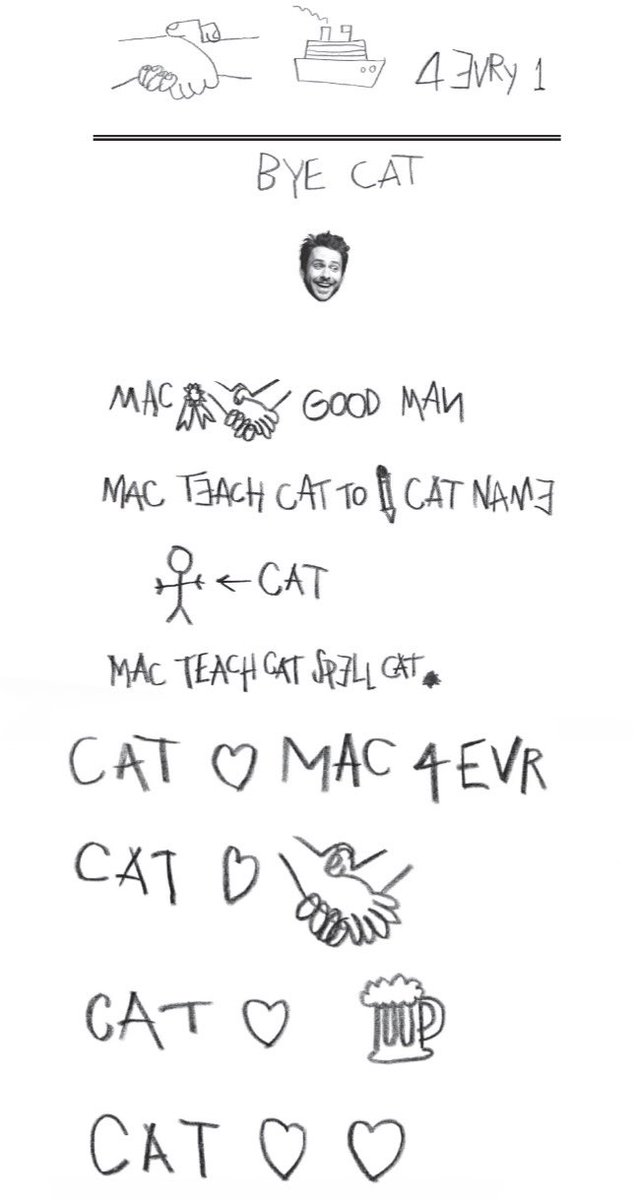 4 EVRY 1
BYE CAT
MAC GOOD MAN
MAC TEACH CAT TO CAT NAME
CAT
MAC TEACH CAT SPELL CAT.
CAT MAC 4 EVR
CAT
CAT
CAT